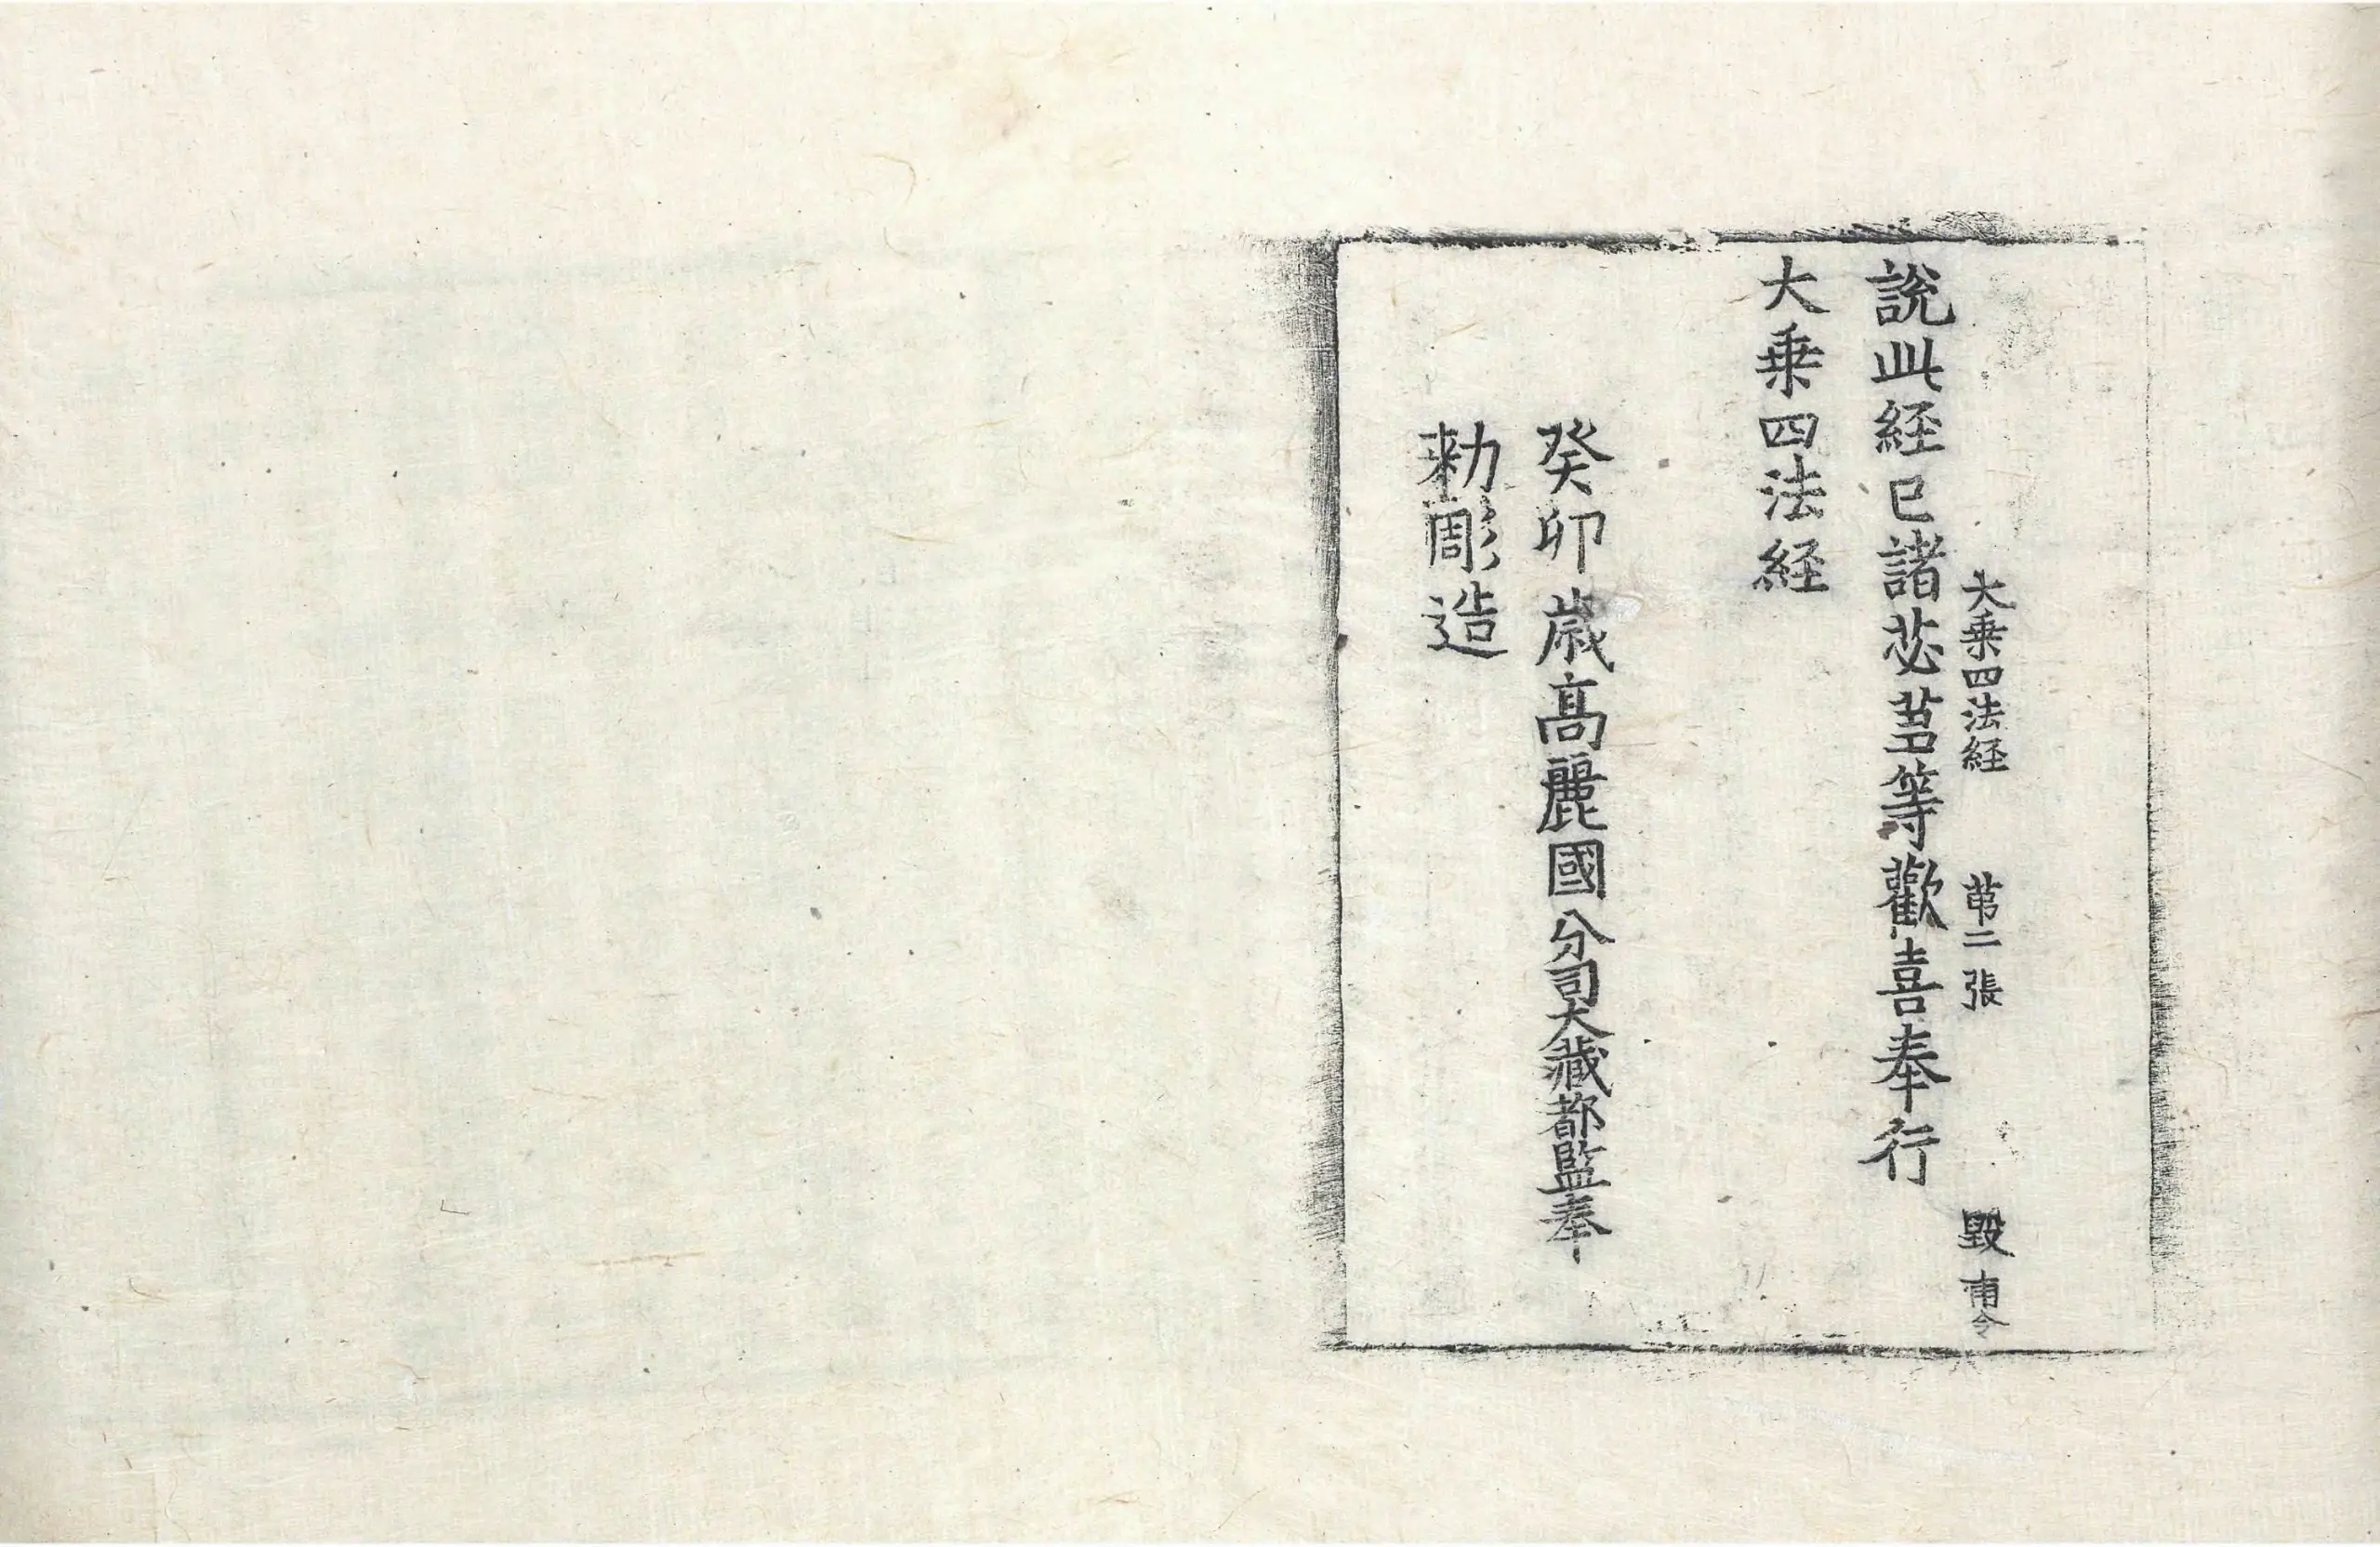 大乗四法経 苐二張 毀 甫令
說此経已諸苾蒭等歡喜奉行
大乗四法経
癸卯歲髙麗國分司大藏都監奉
勑彫造